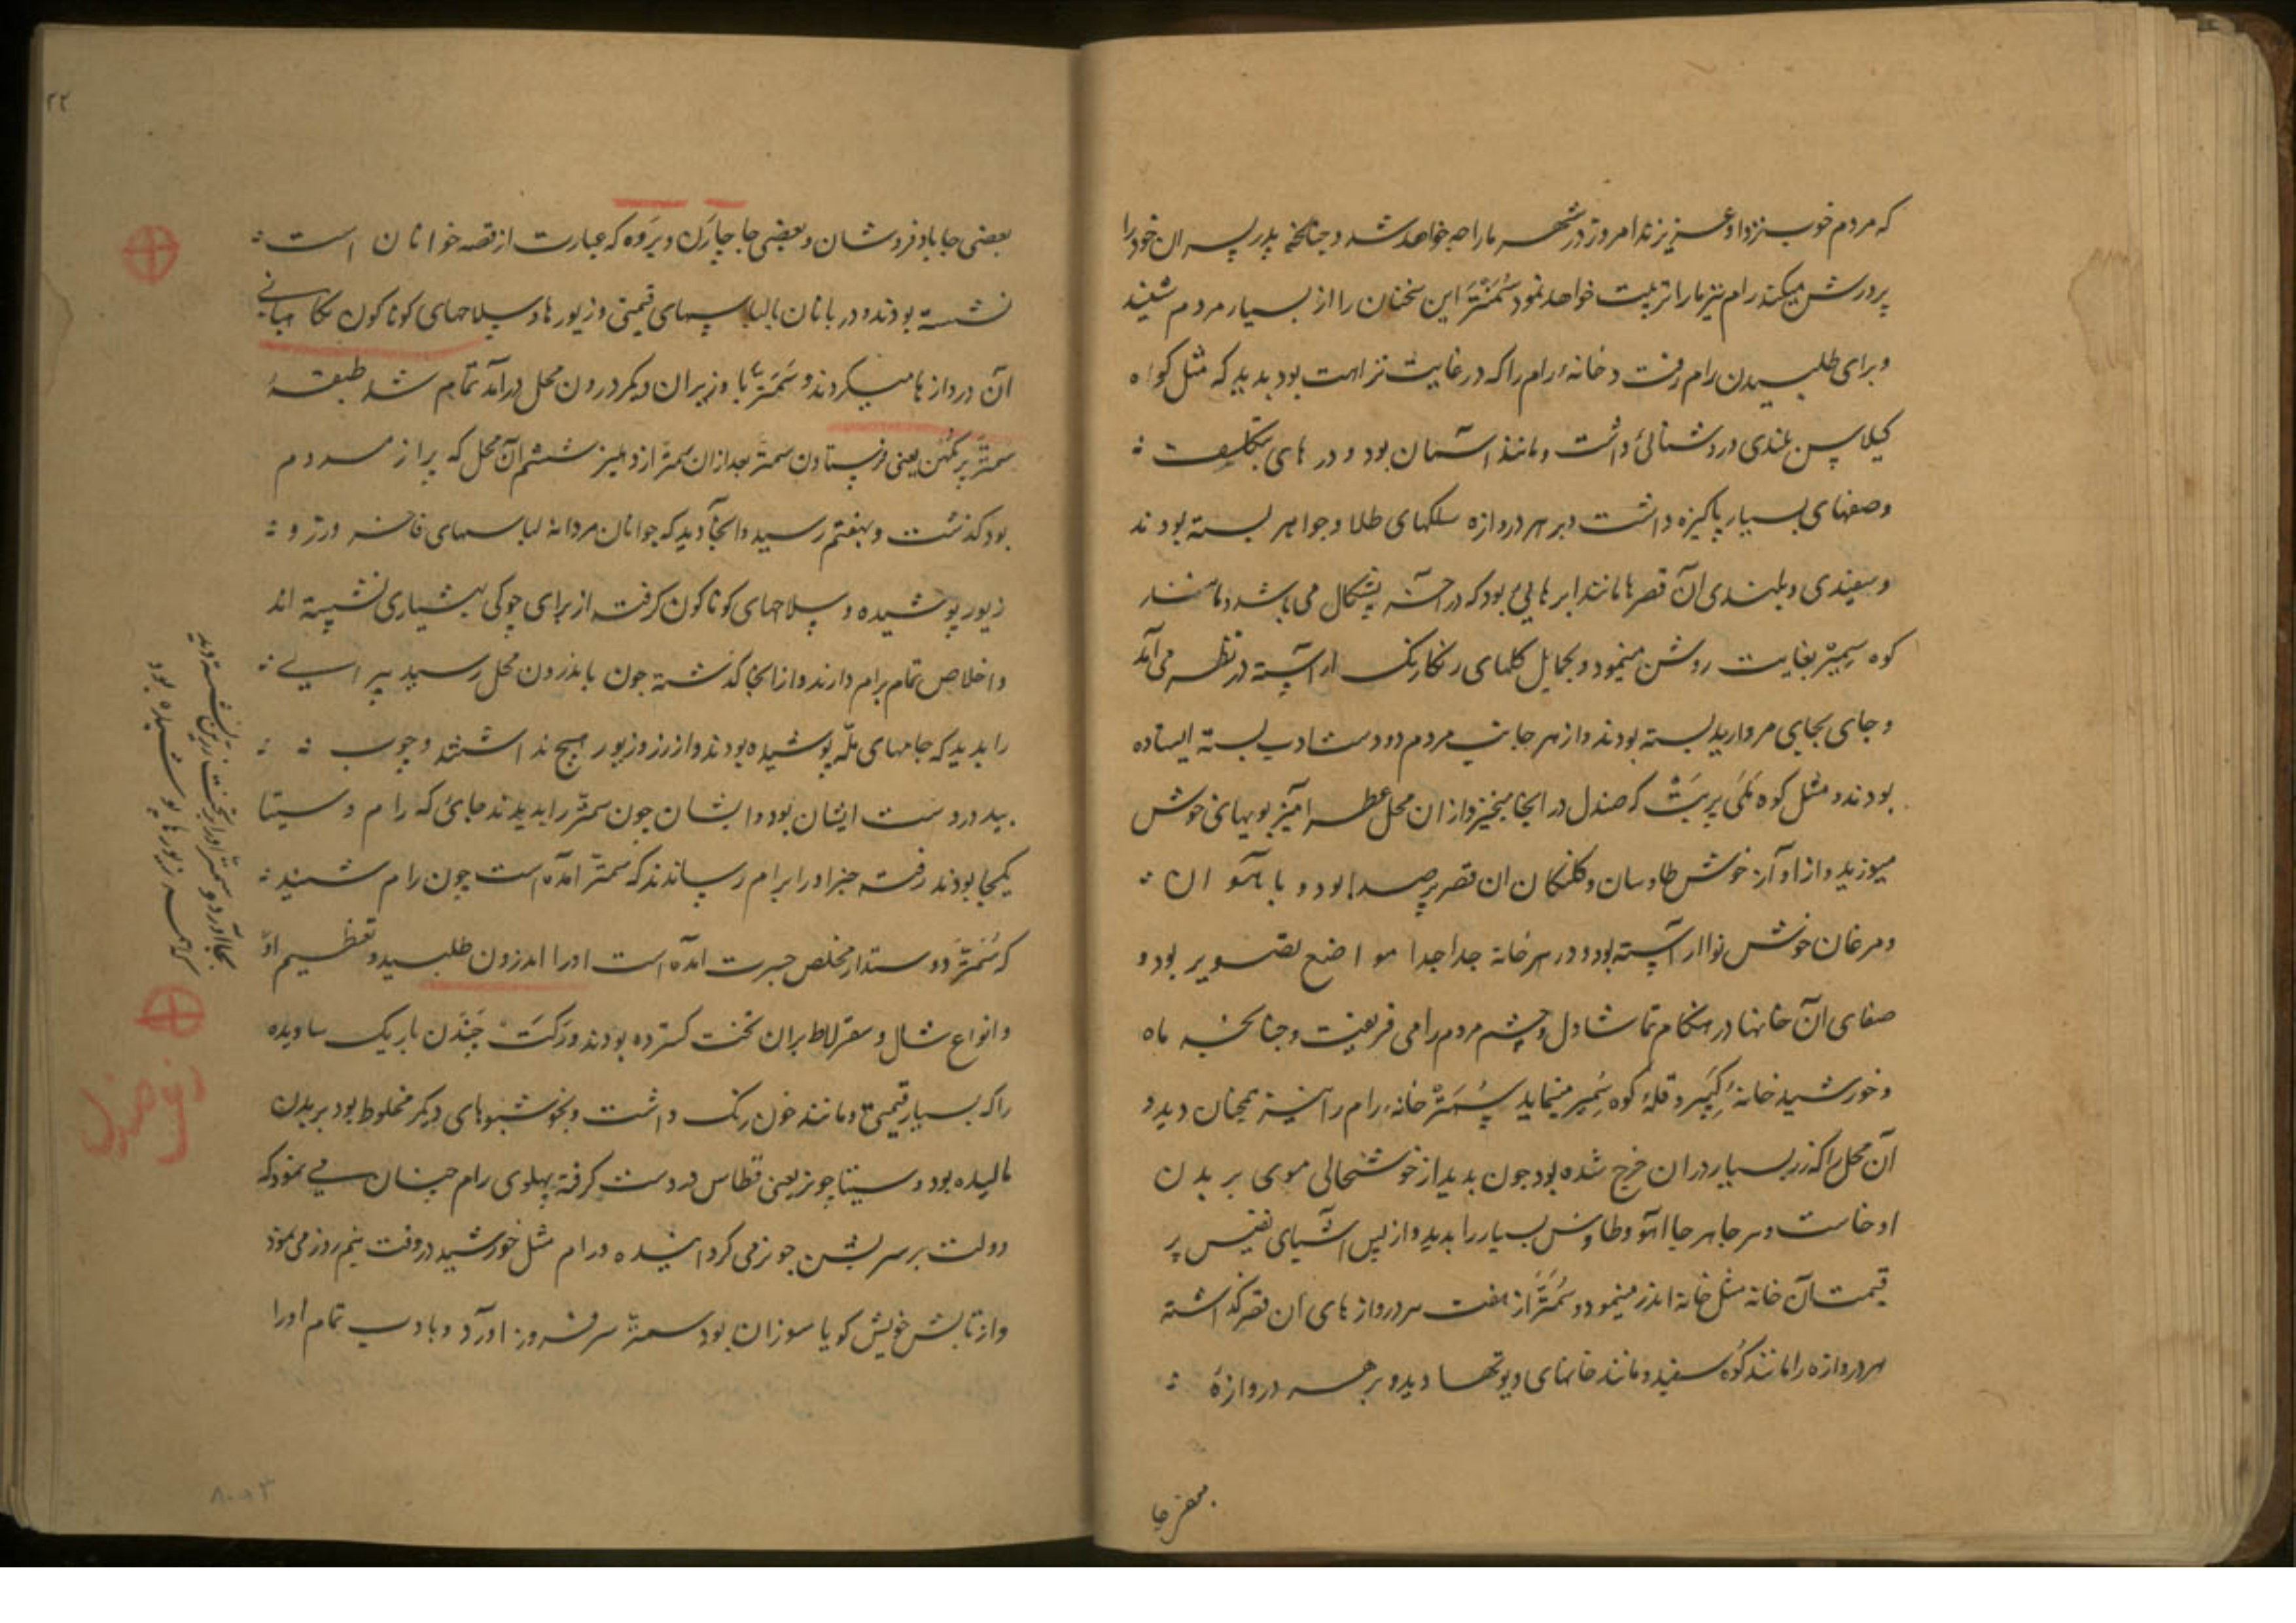 که مردم خوب نزد او عزیزند امروز در شهر ما راجه خواهد شد و چنانچه پدر پسران خود را
پرورش میکند رام نیز ما را تربیت خواهد نمود سُمَنْتَر این سخنان را از بسیار مردم شنید
و برای طلبیدن رام رفت و خانهٔ رام را که در غایت نزاهت بود بدید که مثل کوه
کیلاس بلندی و روشنائی داشت و مانند آسمان بود و درهای بتکلف
و صفهای بسیار پاکیزه داشت و بر هر دروازه سلکهای طلا و جواهر بسته بودند
و سفیدی و بلندی آن قصرها مانند ابرهایی بود که در آخر پشکال می باشد و مانند
کوه سمیر بغایت روشن مینمود و بحمایل کلهای رنکارنک آراسته در نظر می آمد
و جای بجای مروارید بسته بودند و از هر جانب مردم دو دست ادب بسته ایستاده
بودند و مثل کوه ملَی پربت که صندل در انجا میخیزد از ان محل عطر آمیز بویهای خوش
میوزید و از آواز خوش طاوسان و کلنکان ان قصر پر صدا بود و با آهوان
و مرغان خوش نوا آراسته بود و در هر خانه جدا جدا مواضع تصویر بود و
صفای آن خانها در هنکام تماشا دل و چشم مردم را می فریفت و چنانچه ماه
و خورشید خانهٔ کبیر و قلهٔ کوه سمیر مینماید سُمَنْتر خانهٔ رام را نیز همچنان دید و
آن محل را که زر بسیار در ان خرج شده بود چون بدید از خوشحالی موی بر بدن
او خاست و هر جا هر جا آهو و طاوس بسیار را بدید و از بس اشیای نفیس پر
قیمت آن خانه مثل خانهٔ اندر مینمود و سُمَنْتَر از هفت سر دروازهای ان قصر گذاشته
هر دروازه را مانند کوه سفید و مانند خانهای دیوتها دید و بر هر دروازهٔ
بعضی جا
۲۲
بعضی جا بادفروشان و بعضی جا چارن و بروه که عبارت از قصه خوانان است
نشسته بودند و دربانان بالباسهای قیمتی و زیورها و سلاحهای کوناکون نکاهبانی
آن دروازها میکردند و سمنتر با وزیران دیکر درون محل درآمد تمام شد طبقهٔ
سمنتر پرکمن یعنی فرستادن سمنتر بعد ازان سمنتر از دهلیز ششم آن محل که پر از مردم
بود کذشت و بهفتم رسید و انجا دید که جوانان مردانه لباسهای فاخره و زر و
زیور پوشیده و سلاحهای کوناکون کرفته از برای چوکی بهشیاری نشسته اند
و اخلاص تمام برام دارند و از انجا کذشته چون باندرون محل رسید پیرانی
را بدید که جامهای ملّه پوشیده بودند و از زر و زیور هیچ نداشتند و چوب
بید در دست ایشان بود و ایشان چون سمنتر را بدیدند جائی که رام و سیتا
یکجا بودند رفته خبر او را برام رساندند که سمنتر آمده است چون رام شنید
که سُمَنْتَر دوستدار مخلص جسرت آمده است او را اندرون طلبید و تعظیم او
و انواع شال و سقرلاط بران تخت کسترده بودند و رَکت چَنْدَن باریک ساویده
را که بسیار قیمتی و مانند خون رنک داشت و بخوشبوهای دیکر مخلوط بود بر بدن
مالیده بود و سیتا چونر یعنی قطاس در دست کرفته پهلوی رام چنان می نمود که
دولت بر سر بشن چونر می کرداند و رام مثل خورشید در وقت نیم روز می نمود
و از تابش خویش کویا سوزان بود سمنتر سر فرود آورد و بادب تمام او را
بجا آورد و سمنتر او را بر تخت زرین نشسته دید
که همه زیورها پوشیده بود